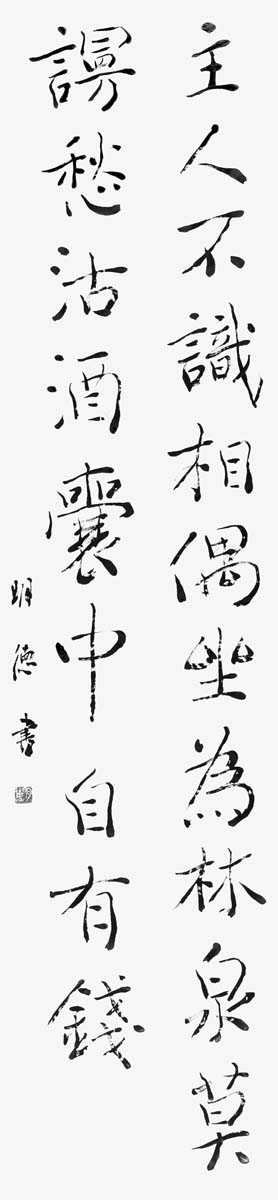 主人不識相偶坐為林泉莫
謾愁沽酒囊中自有錢
明德書